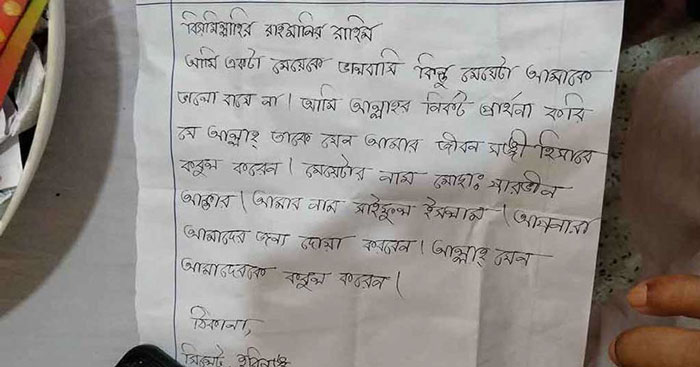 বিসমিল্লাহির রাহমানির রাহিম
আমি একটা মেয়েকে ভালবাসি কিন্তু মেয়েটা আমাকে
ভালো বাসে না। আমি আল্লাহর নিকট প্রার্থনা করি
যে আল্লাহ্ তাকে যেন আমার জীবন সঙ্গী হিসাবে
কবুল করেন। মেয়েটার নাম মোছাঃ পারভীন
আক্তার। আমার নাম সাইফুল ইসলাম। আপনারা
আমাদের জন্য দোয়া করবেন। আল্লাহ্ যেন
আমাদেরকে কবুল করেন।
ঠিকানা,
সিলেট,